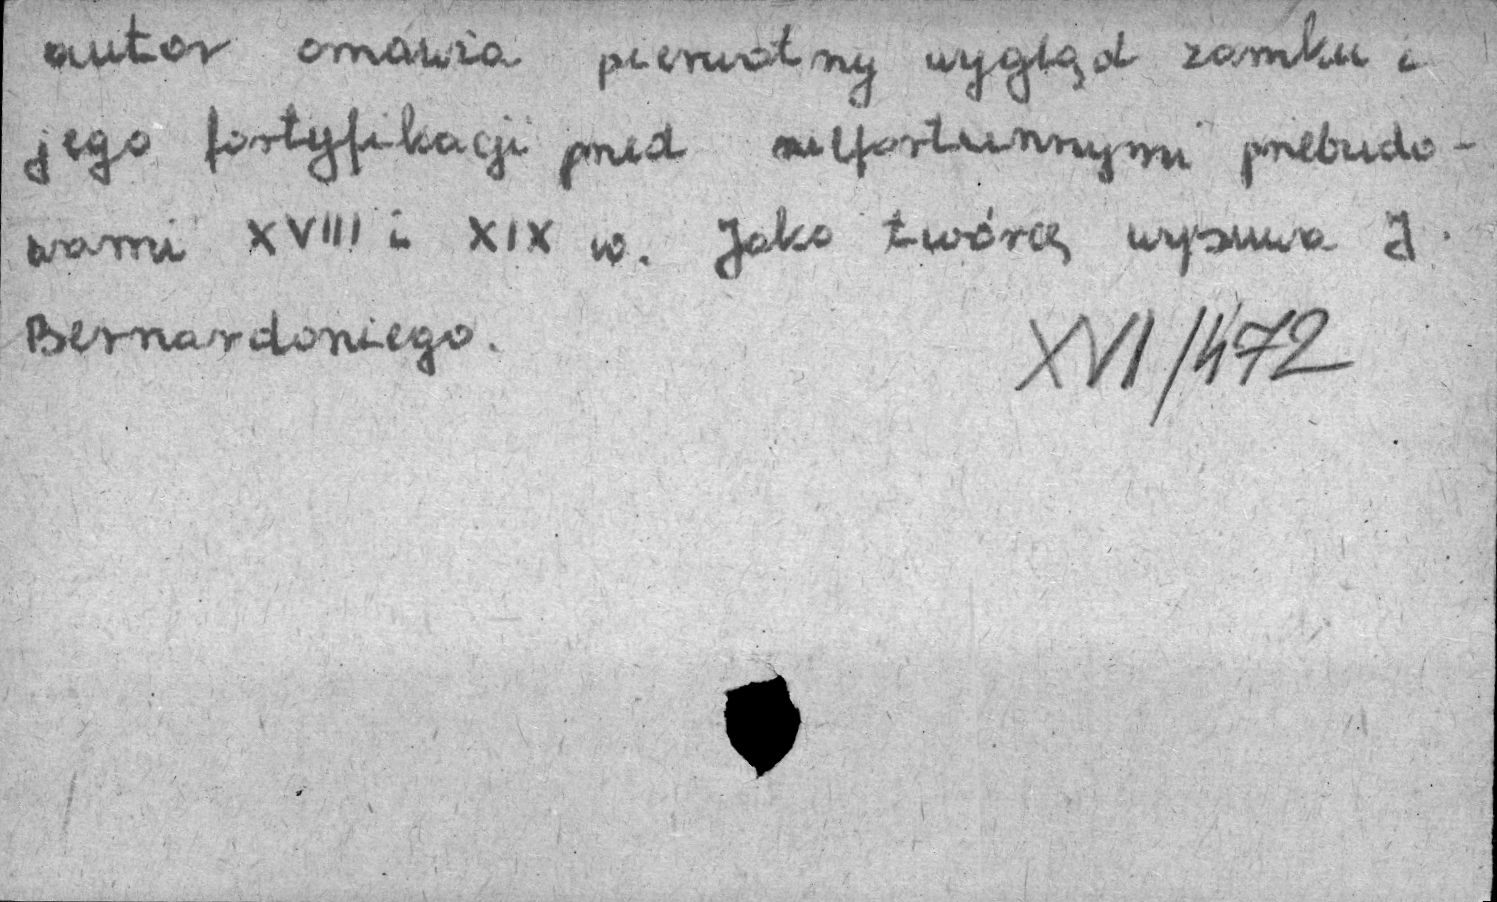 autor omawia pierwotny wygląd zamku i
jego fortyfikacji przed niefortunnymi przebudo-
wami XVIII i XIX w. Jako twórcę wysuwa J.
Bernardoniego.
XVI/472